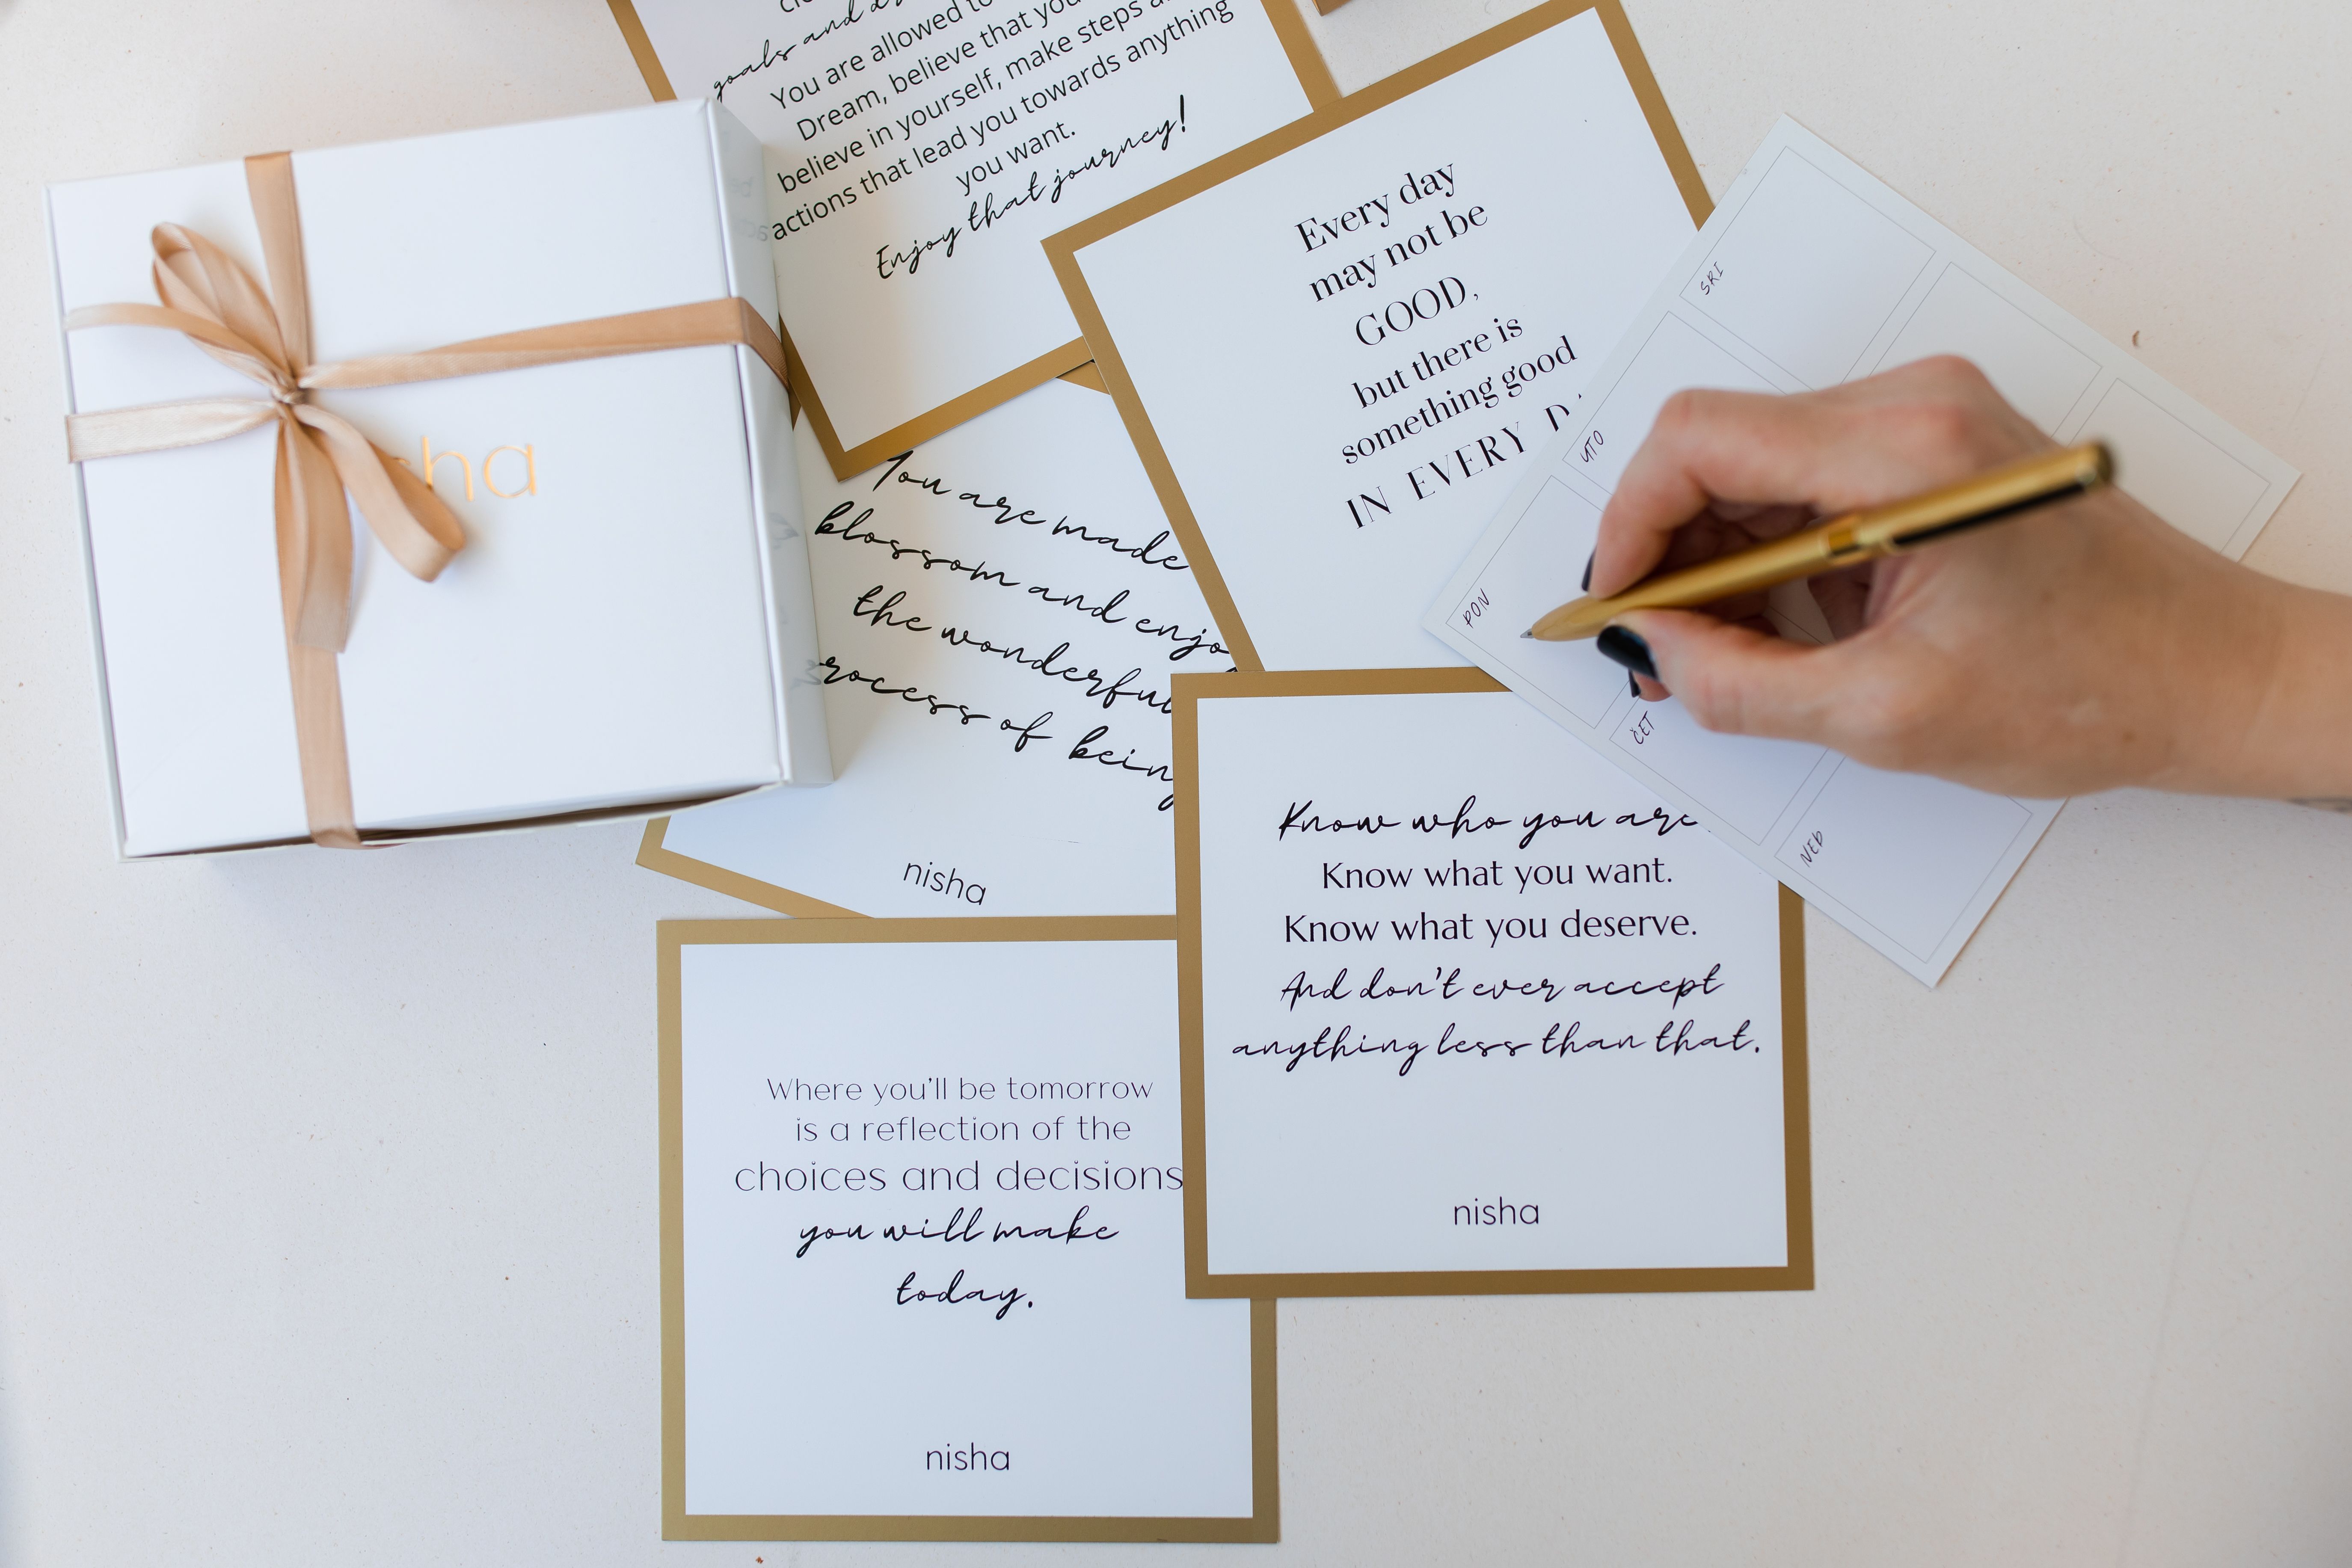 goals and
You are allowed to
Dream, believe that you
believe in yourself, make steps
actions that lead you towards anything
you want.
Enjoy that journey!
Every day
may not be
GOOD,
but there is
something good
IN EVERY
SRI
UTO
PON
ČET
NED
ha
You are made
blossom and enjo
the wonderful
rocess of being
nisha
Know who you are.
Know what you want.
Know what you deserve.
And don't ever accept
anything less than that.
nisha
Where you'll be tomorrow
is a reflection of the
choices and decisions
you will make
today.
nisha